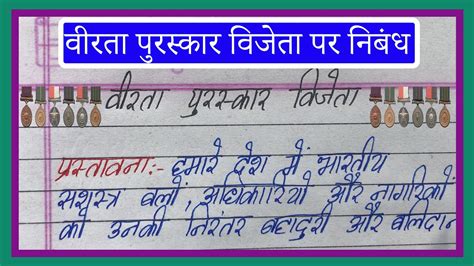 वीरता पुरस्कार विजेता पर निबंध
वीरता पुरस्कार विजेता
प्रस्तावना:- हमारे देश में भारतीय
सशस्त्र बलों, अधिकारियों और नागरिकों
को उनकी निरंतर बहादुरी और बलिदान